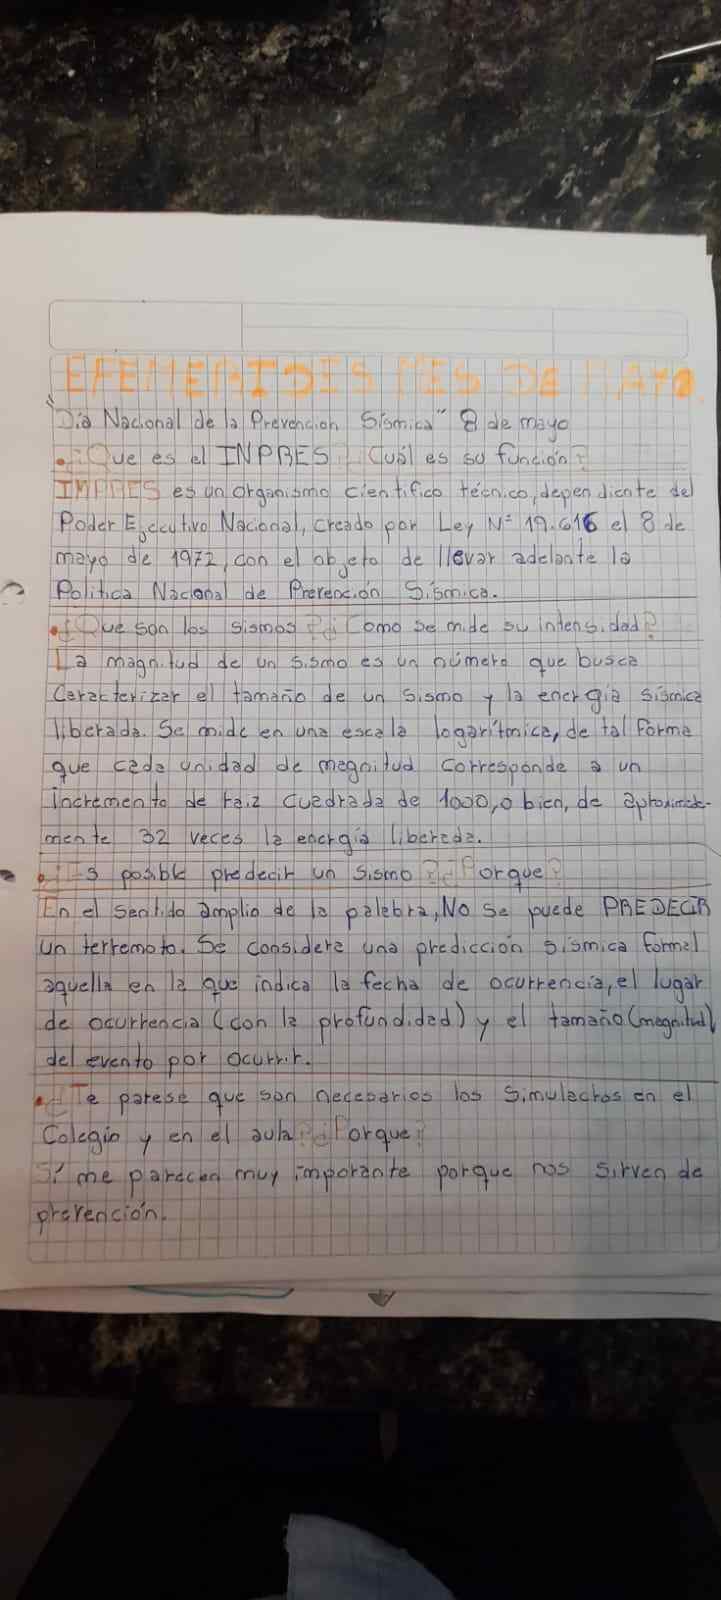 EFEMERIDES MES DE MAYO.
"Dia Nacional de la Prevencion Sísmica" 8 de mayo
• ¿Que es el INPRES? ¿Cuál es su función?
IMPRES es un organismo cientifico técnico, dependiente del
Poder Ejecutivo Nacional, creado por Ley N° 19.616 el 8 de
mayo de 1972, con el objeto de llevar adelante la
Politica Nacional de Prevención Sísmica.
• ¿Que son los sismos? ¿Como se mide su intensidad?
La magnitud de un sismo es un número que busca
Caracterizar el tamaño de un sismo y la energía sísmica
liberada. Se mide en una escala logarítmica, de tal forma
que cada unidad de magnitud corresponde a un
incremento de raiz cuadrada de 1000, o bien, de aproximada-
mente 32 veces la energía liberada.
• ¿Es posible predecir un sismo? ¿Porque?
En el sentido amplio de la palabra, No se puede PREDECIR
un terremoto. Se considera una predicción sísmica formal
aquella en la que indica la fecha de ocurrencia, el lugar
de ocurrencia (con la profundidad) y el tamaño (magnitud)
del evento por ocurrir.
• ¿Te parese que son necesarios los simulacros en el
Colegio y en el aula? ¿Porque?
Sí me parecen muy imporante porque nos sirven de
prevención.